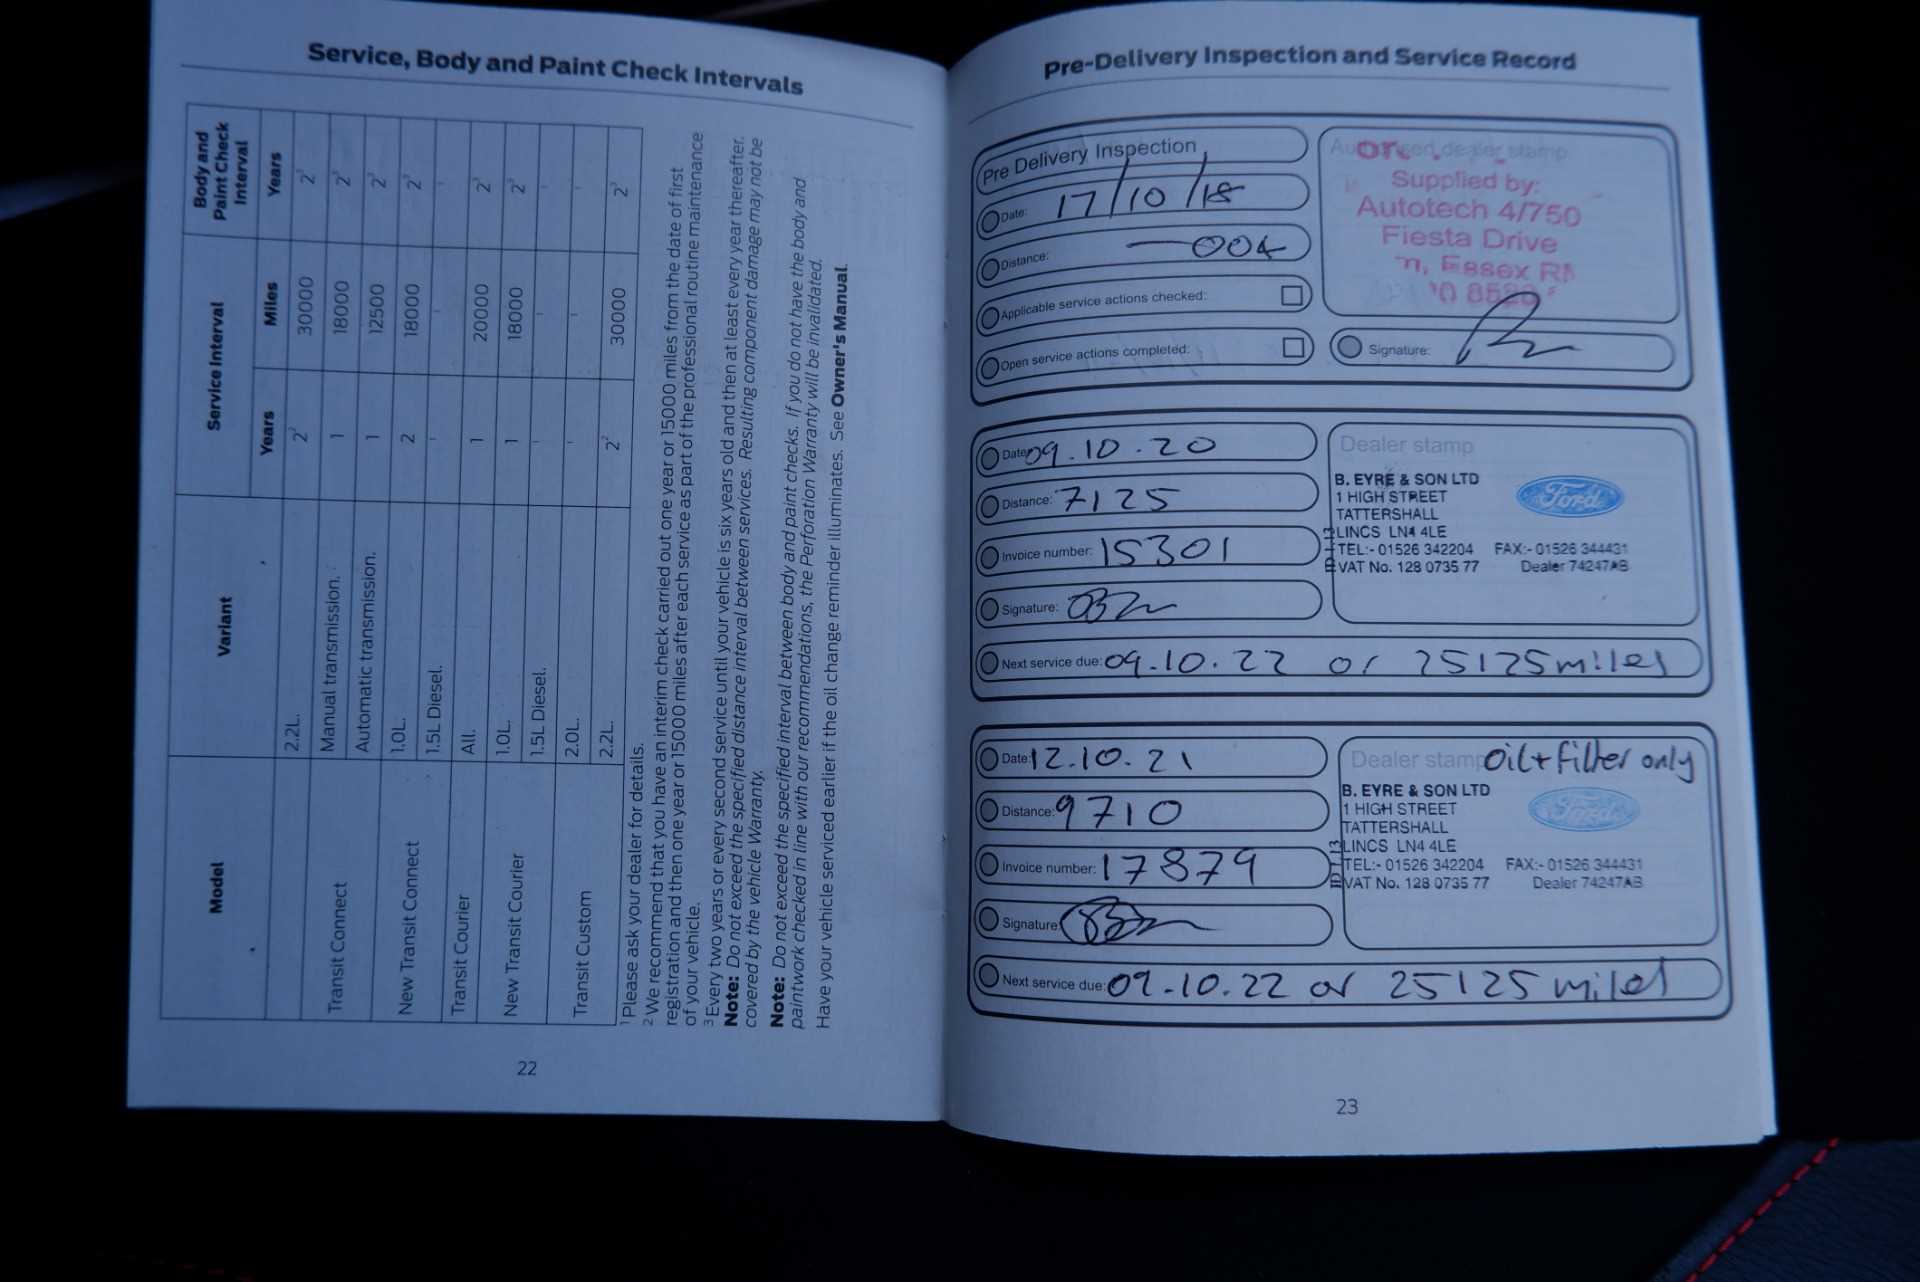 Service, Body and Paint Check Intervals
Model Variant Service Interval Body and Paint Check Interval
Years Miles Years
2.2L. 2² 30000 2³
Transit Connect Manual transmission. 1 18000 2³
Automatic transmission. 1 12500 2³
New Transit Connect 1.0L. 2 18000 2³
1.5L Diesel. - - -
Transit Courier All. 1 20000 2³
New Transit Courier 1.0L. 1 18000 2³
1.5L Diesel. - - -
Transit Custom 2.0L. - - -
2.2L. 2² 30000 2³
¹ Please ask your dealer for details.
² We recommend that you have an interim check carried out one year or 15000 miles from the date of first
registration and then one year or 15000 miles after each service as part of the professional routine maintenance
of your vehicle.
³ Every two years or every second service until your vehicle is six years old and then at least every year thereafter.
Note: Do not exceed the specified distance interval between services. Resulting component damage may not be
covered by the vehicle Warranty.
Note: Do not exceed the specified interval between body and paint checks. If you do not have the body and
paintwork checked in line with our recommendations, the Perforation Warranty will be invalidated.
Have your vehicle serviced earlier if the oil change reminder illuminates. See Owner's Manual.
22
Pre-Delivery Inspection and Service Record
Pre Delivery Inspection
Date: 17/10/18
Distance: 004
Applicable service actions checked:
Open service actions completed:
dealer stamp
Supplied by:
Autotech 4/750
Fiesta Drive
Essex
Signature:
Date: 09.10.20
Distance: 7125
Invoice number: 15301
Signature:
Next service due: 09.10.22 or 25125 miles
Dealer stamp
B. EYRE & SON LTD
1 HIGH STREET
TATTERSHALL
LINCS LN4 4LE
TEL:- 01526 342204 FAX:- 01526 344431
VAT No. 128 0735 77 Dealer 74247AB
Ford
Date: 12.10.21
Distance: 9710
Invoice number: 17879
Signature:
Next service due: 09.10.22 or 25125 miles
Dealer stamp oil + filter only
B. EYRE & SON LTD
1 HIGH STREET
TATTERSHALL
LINCS LN4 4LE
TEL:- 01526 342204 FAX:- 01526 344431
VAT No. 128 0735 77 Dealer 74247AB
Ford
23